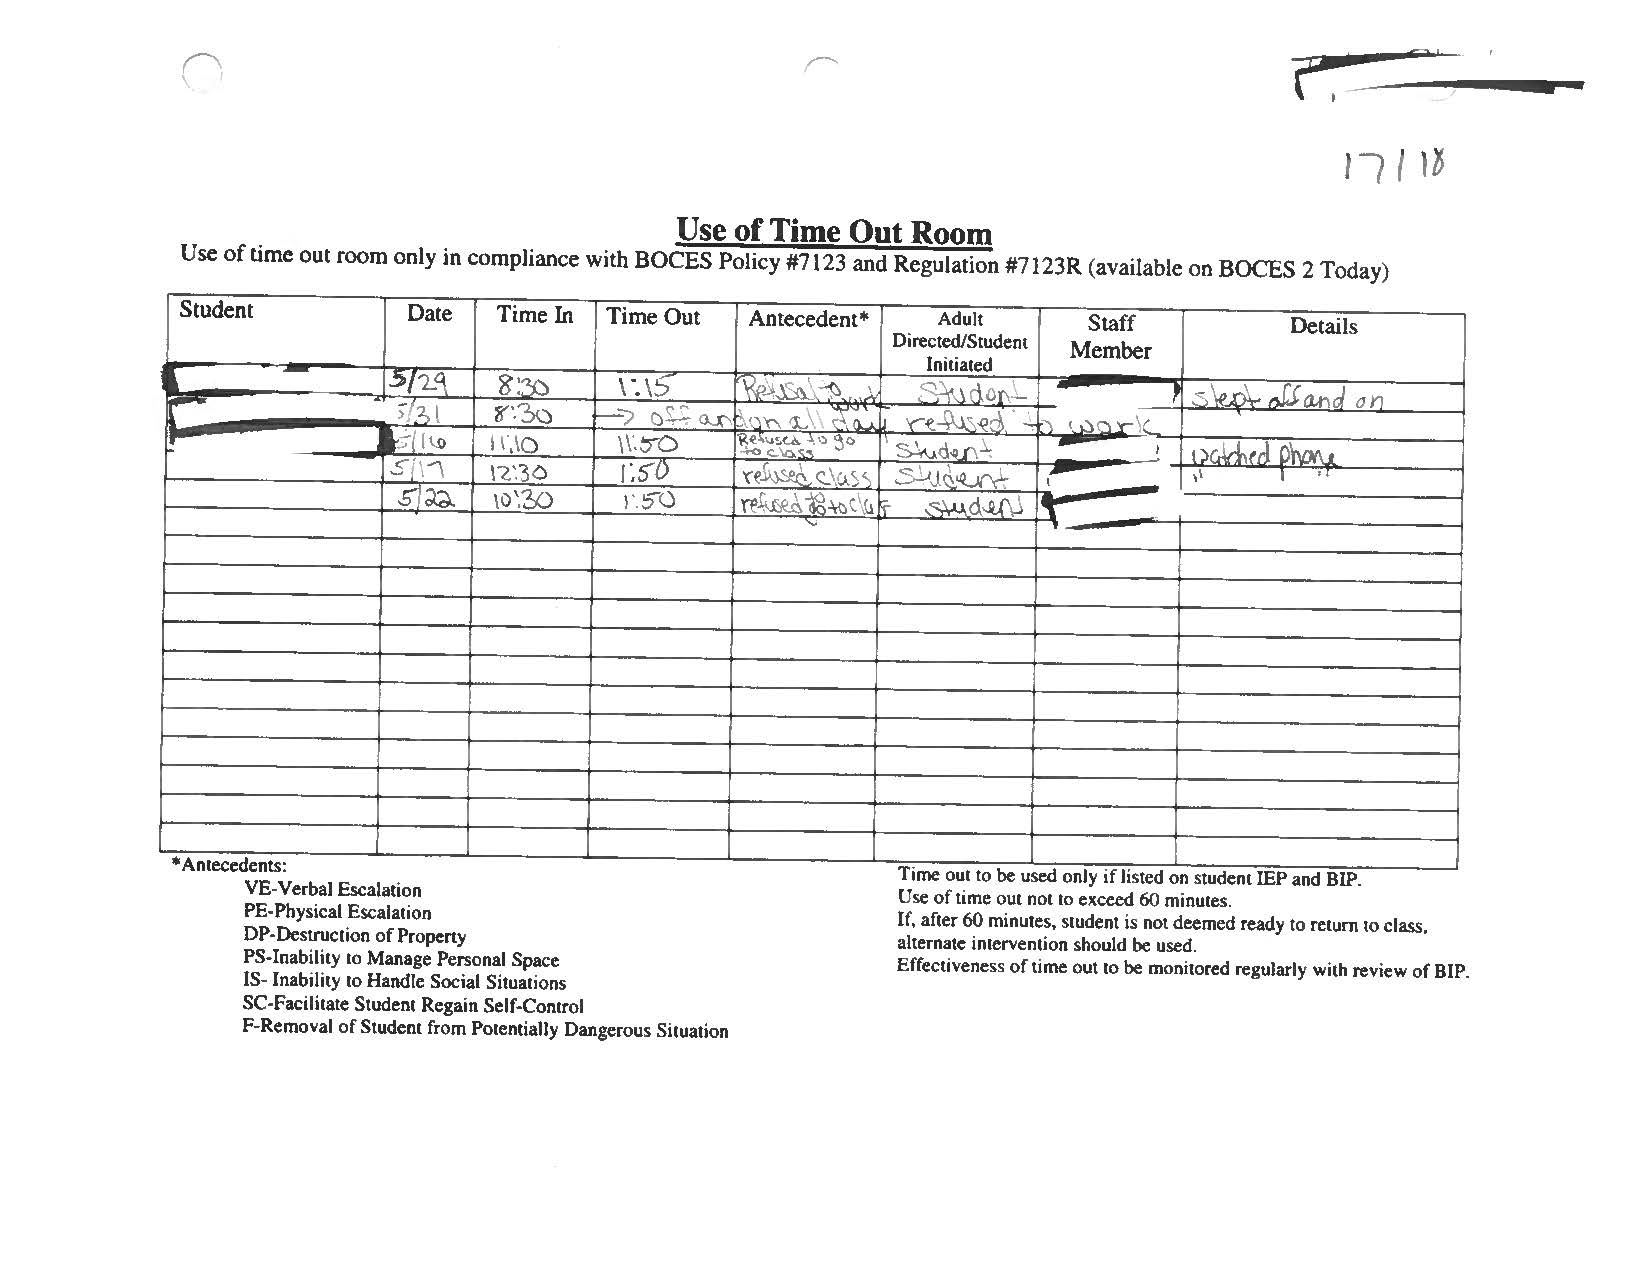 17/18
Use of Time Out Room
Use of time out room only in compliance with BOCES Policy #7123 and Regulation #7123R (available on BOCES 2 Today)
Student Date Time In Time Out Antecedent* Adult Directed/Student Initiated Staff Member Details
5/29 8:30 1:15 Refusal to work Student slept off and on
5/31 8:30 → off and on all day refused to work
5/16 11:10 11:50 Refused to go to class Student watched phone
5/17 12:30 1:50 refused class Student " "
5/22 10:30 1:50 refused to go to class student
*Antecedents:
VE-Verbal Escalation
PE-Physical Escalation
DP-Destruction of Property
PS-Inability to Manage Personal Space
IS- Inability to Handle Social Situations
SC-Facilitate Student Regain Self-Control
F-Removal of Student from Potentially Dangerous Situation
Time out to be used only if listed on student IEP and BIP.
Use of time out not to exceed 60 minutes.
If, after 60 minutes, student is not deemed ready to return to class,
alternate intervention should be used.
Effectiveness of time out to be monitored regularly with review of BIP.